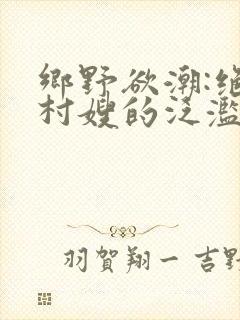 鄉野欲潮:絕
村嫂的泛濫
羽賀翔一 吉野